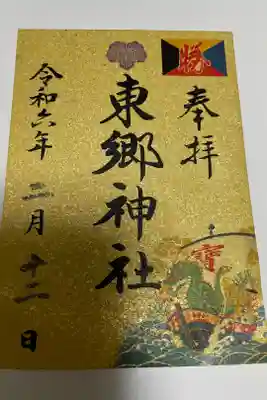 勝
奉拝
東郷神社
令和六年二月十二日
寶